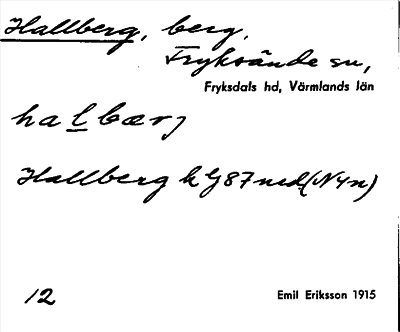 Hallberg, berg,
Fryksände sn,
Fryksdals hd, Värmlands län
halbærj
Hallberg k G87 ned (N4n)
12 Emil Eriksson 1915